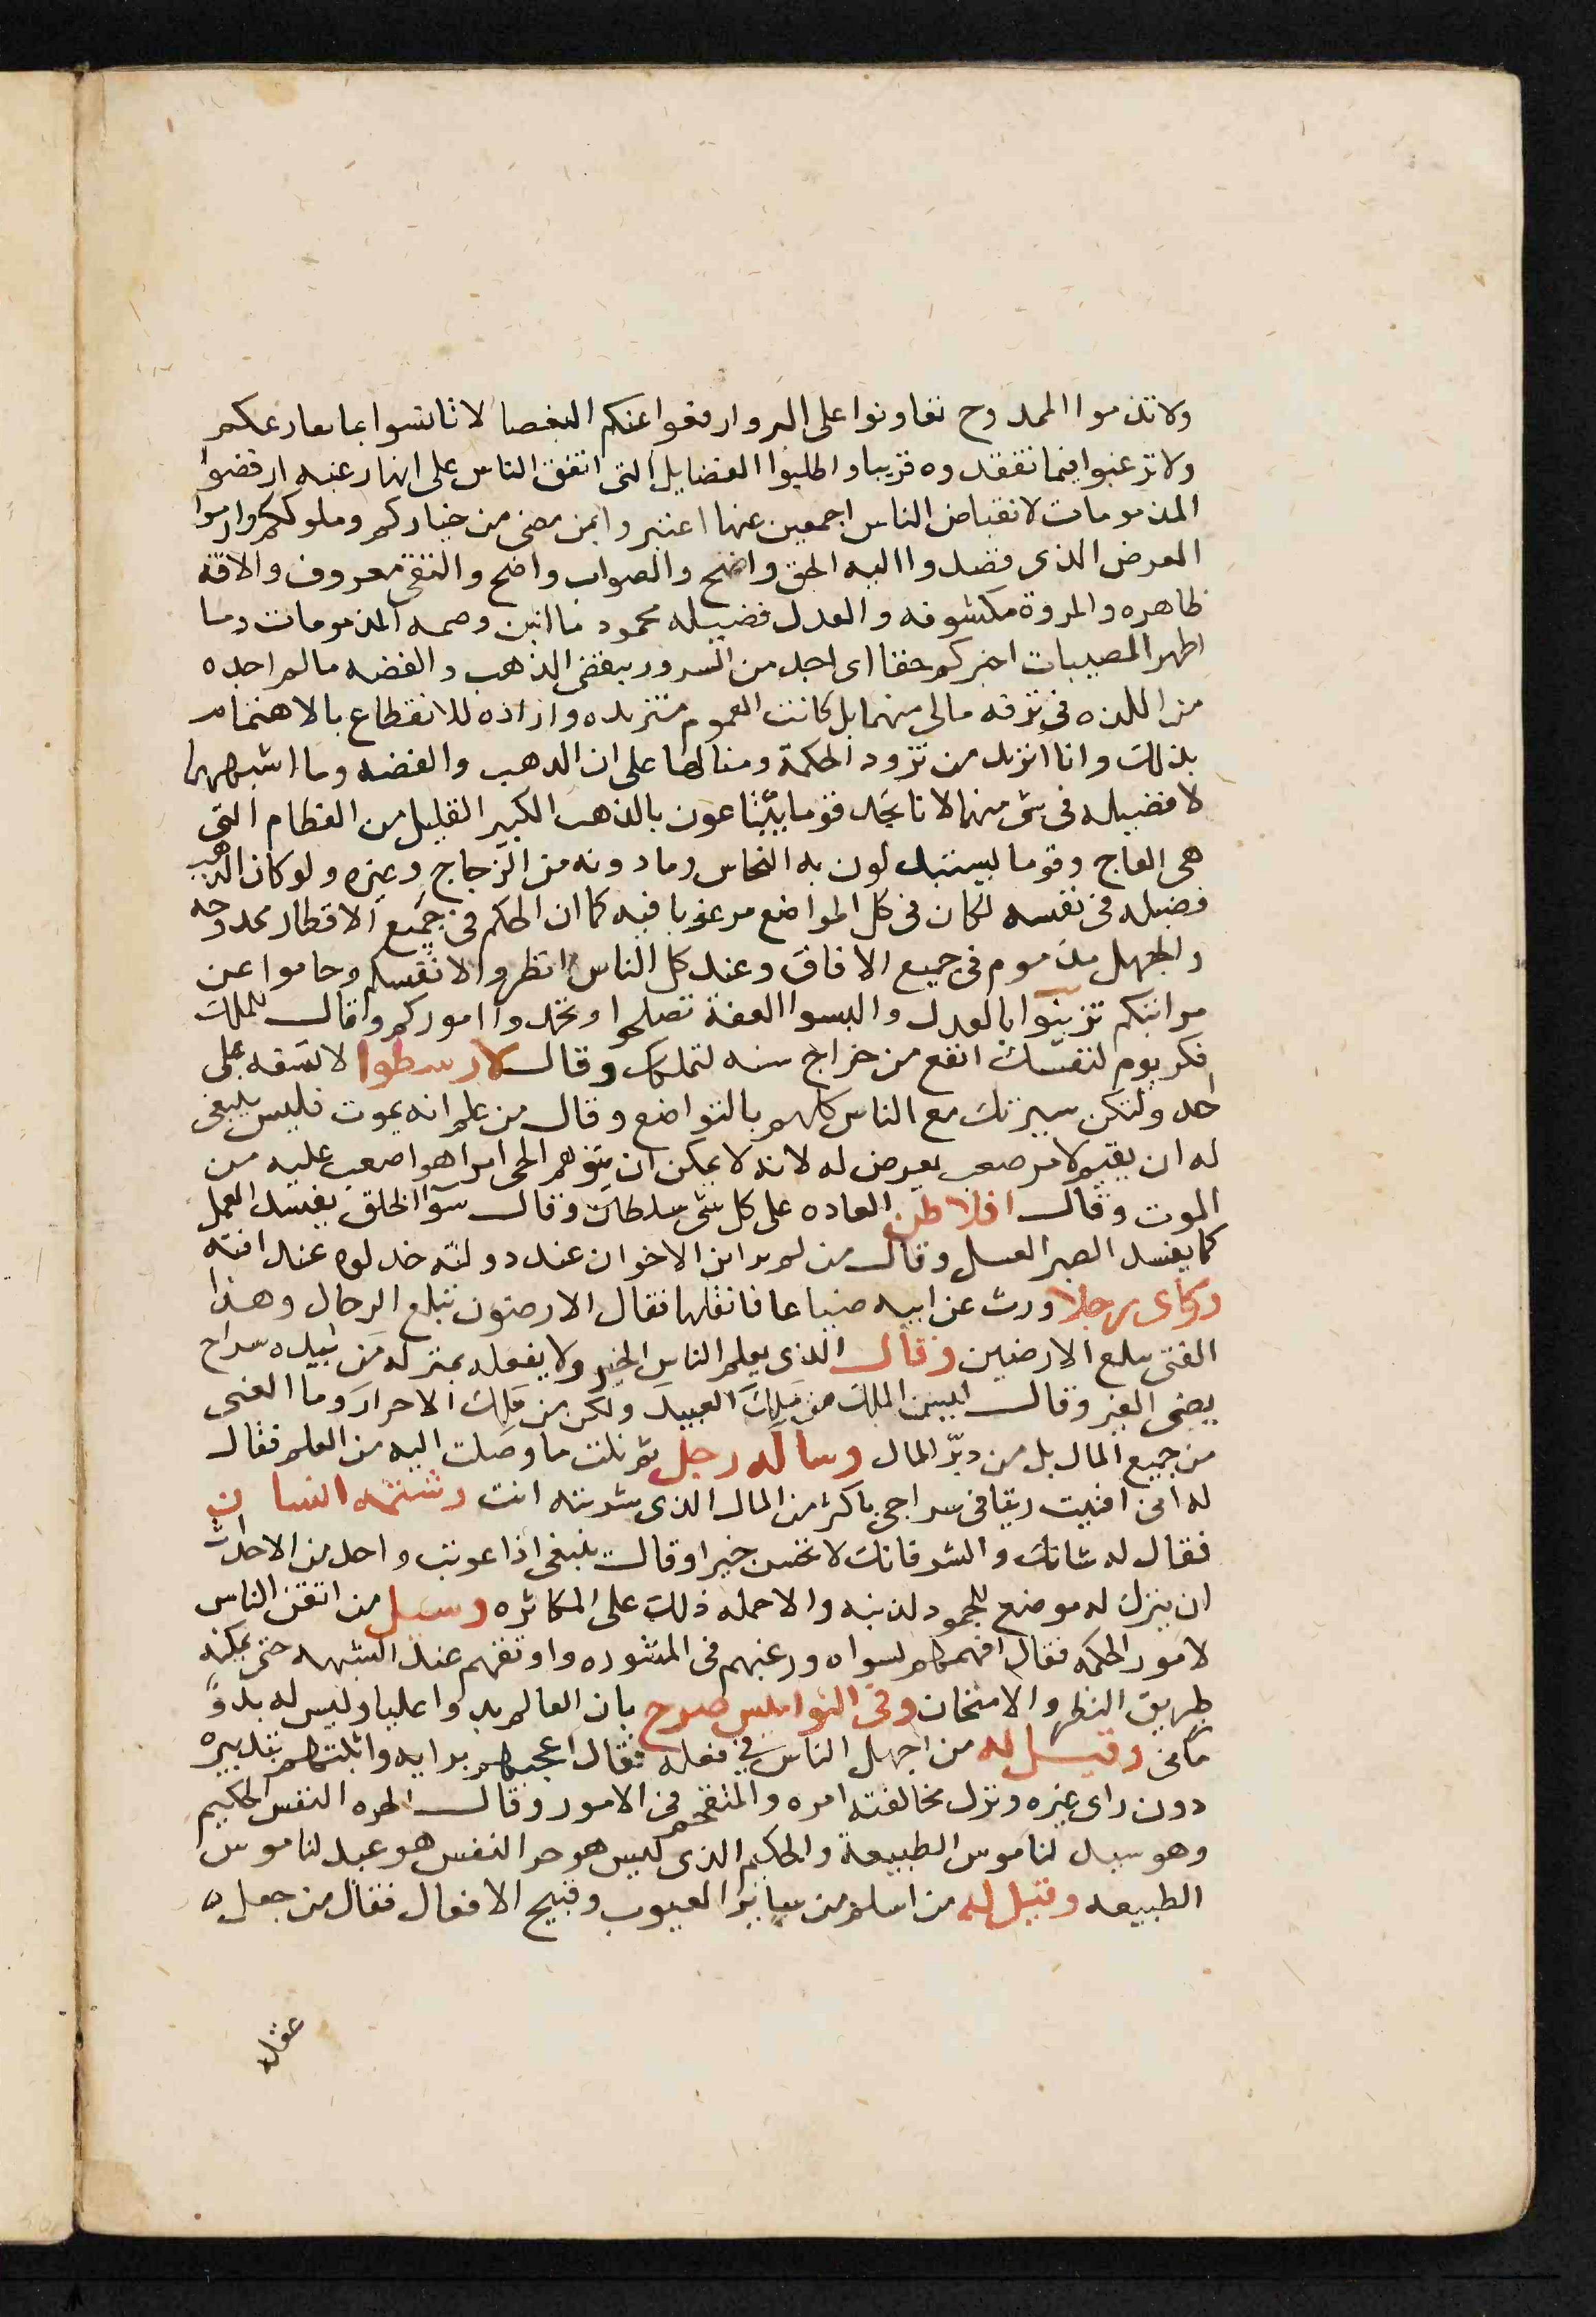 ولا تذموا الممدوح تعاونوا على البر وارفعوا عنكم البغضا لا تانسوا بما
ولا ترغبوا فيما تفقدوه قريبا واطلبوا الفضايل التى اتفق الناس على انها رغبه ارفضوا
المذمومات لانقباض الناس اجمعين عنها اعتبروا بمن مضى من خياركم وملوككم وارموا
الغرض الذى قصدوا اليه الحق واضح والصواب واضح والتقى معروف والافة
ظاهره والمروة مكشوفه والعدل فضيله محمود ما ابين وصمه المذمومات وما
اظهر المصيبات اخبركم حقا اى اجد من السرور ببغض الذهب والفضه مالم اجده
من اللذه فى تزفه مالى منهما بل كانت الغموم متزيده وازاذه للانقطاع بالاهتمام
بذلك وانا اتزيد من تزود الحكمة ومنالها على ان الذهب والفضه وما اشبههما
لا فضيله فى شى منهما لانا نجد قوما يبتاعون بالذهب الكبير القليل من العظام التى
هى العاج وقوما يستبدلون به النحاس وما دونه من الزجاج وغيره ولو كان الذهب
فضيله فى نفسه لكان فى كل المواضع مرغوبا فيه كما ان الحكم فى جميع الاقطار ممدوحه
والجهل مذموم فى جميع الافاق وعند كل الناس انظروا لانفسكم وحاموا عن
مراتبكم تزينوا بالعدل والبسوا العفة تصلحوا وتحمدوا اموركم وقال للملك
فكر يوم لنفسك انفع من خراج سنه لتملكك وقال لارسطوا لا تسفه على
احد ولتكن سيرتك مع الناس كلهم بالتواضع وقال من علم انه يموت فليس ينبغى
له ان يقيم لامر صعب يعرض له لانه لا يمكن ان يتوهم الحى امرا هو اصعب عليه من
الموت وقال افلاطن العاده على كل شى سلطان وقال سوا الخلق يفسد العمل
كما يفسد الصبر العسل وقال من لم يواس الاخوان عند دولته خذلوه عند افته
وراى رجلا ورث عن ابيه ضياعا فاتفلها فقال الارضون تبلع الرجال وهذا
الفتى يبلع الارضين وقال الذى يعلم الناس الخير ولا يفعله بمنزله من بيده سراج
يضى لغير وقال ليس الملك من ملك العبيد ولكن من ملك الاحرار وما الغنى
من جمع المال بل من دبّر المال وساله رجل بم نلت ما وصلت اليه من العلم فقال
له انى افنيت زيتا فى سراجى باكثر من المال الذى شربته انت وشتمه انسان
فقال له شانك والشر فانك لا تحسن خيرا وقال ينبغى اذا عوتب واحد من الاحداث
ان يترك له موضع للجحود لذنبه والا حمله ذلك على المكاثره وسيل من اتقن الناس
لامور الحكمه فقال افهمهم لسواه ورغبهم فى المشوره واوقفهم عند الشبهه حتى يمكنه
طريق النظر والامتحان وفى النواميس صرح بان العالم بدوا عليا وليس له بدوّ
مكانى وقيل له من اجهل الناس فى فعله فقال اعجبهم برايه واثبتهم بتدبيره
دون راى غيره وترك مخالفته امره والمتقحم فى الامور وقال الحره النفس الحكيم
وهو سيد لناموس الطبيعة والحكيم الذى ليس هو حر النفس هو عبد لناموس
الطبيعه وقيل له من اسلم من ساير العيوب وقبيح الافعال فقال من جعل
عقله